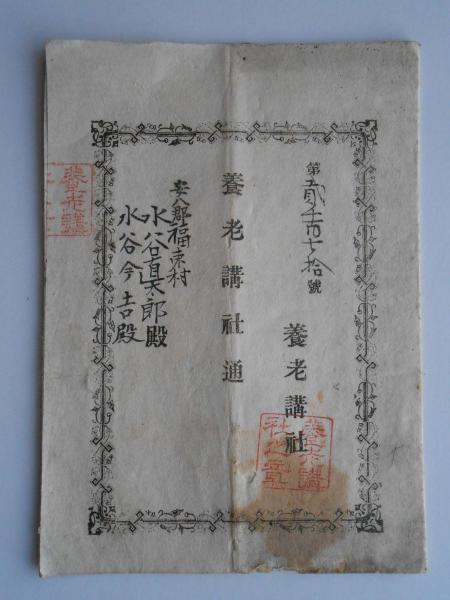 第貳千百七拾號
養老講社
養老講社之章
養老講社通
安八郡福束村
水谷直太郎殿
水谷今吉殿